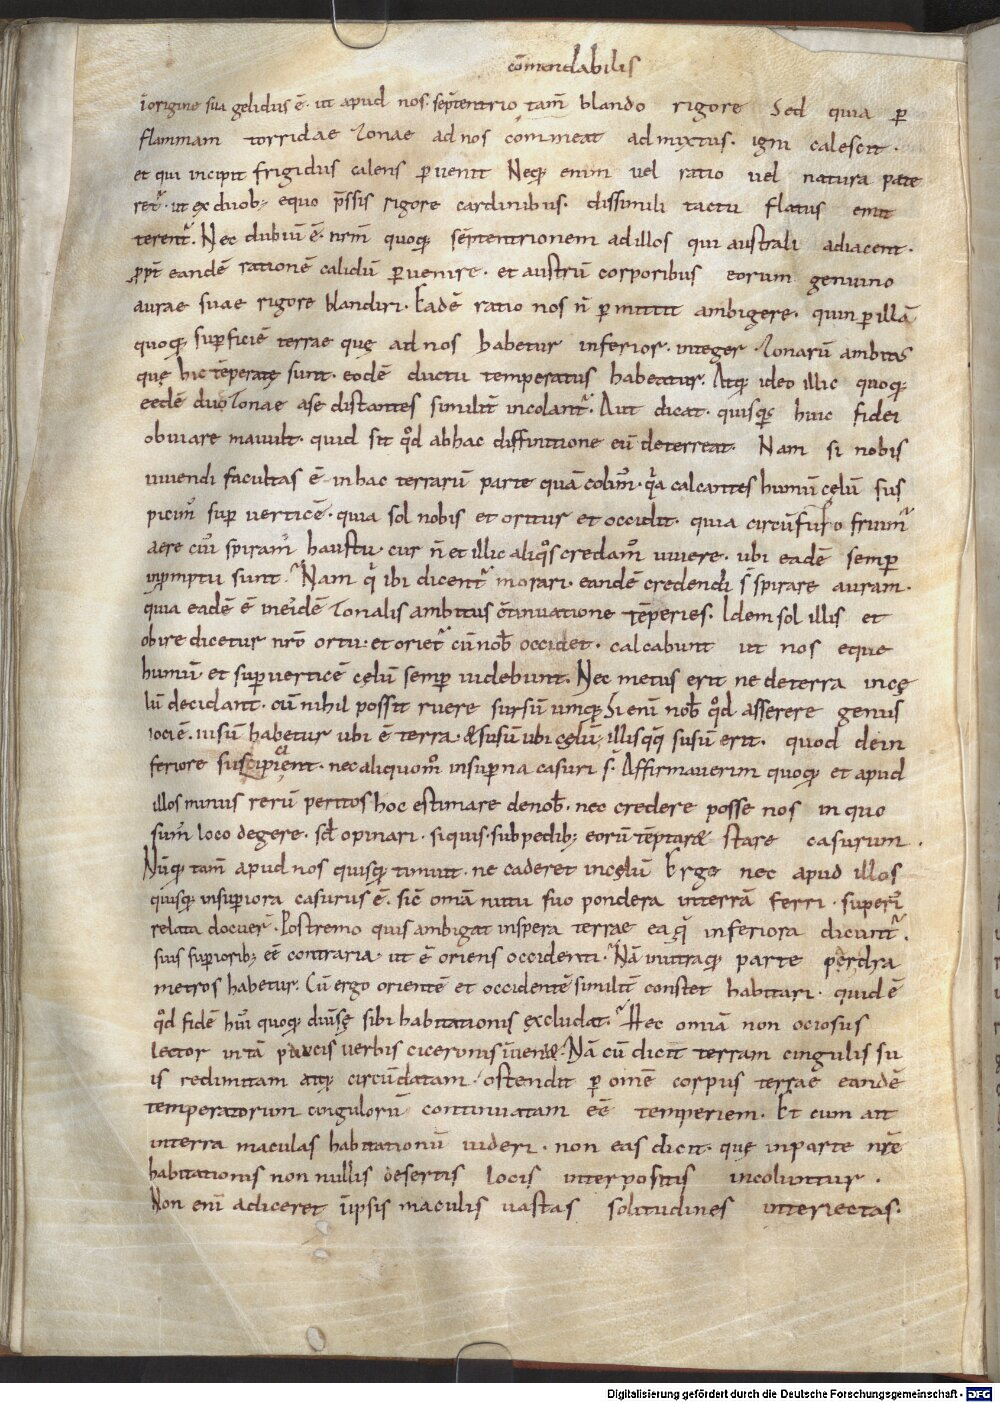 cōmendabilis
ī origine sua gelidus ē· ut apud nos· septentrio tam̄ blando rigore Sed quia ꝑ
flammam torridae zonae ad nos commeat admixtus· igni calescit·
et qui incipit frigidus calens ꝑuenit Neq; enim uel ratio uel natura pate
ret᷑· ut ex duob; equo p̄ssis rigore cardinibus· dissimili tactu flatus emit
terent᷑. Nec dubiū ē· nr̄m quoq; septentrionem ad illos qui australi adiacent·
ꝓpt̄ eandē rationē calidū ꝑuenire· et austrū corporibus eorum genuino
aurae suae rigore blandiri· Eadē ratio nos n̄ ꝑmittit ambigere· quin ꝑ illā
quoq; suꝑficiē terrae quę ad nos habetur inferior· integer zonarū ambitus
quę hic tēperatę sunt· eodē ductu temperatus habeatur. Atq; ideo illic quoq;
eedē duo zonae a se distantes similit̄ incolant᷑. Aut dicat· quisq̄s huic fidei
obuiare mauult· quid sit qd̄ ab hac diffinitione eū deterreat. Nam si nobis
uiuendi facultas ē in hac terrarū parte quā colim᷒· q̄a calcantes humū cęlū sus
picim᷒ suꝑ uerticē· quia sol nobis et oritur et occidit· quia circūfuso fruim᷒
aere cui᷒ spiram᷒ haustu· cur n̄ et illic aliq̄s credam᷒ uiuere· ubi eadē semꝑ
in promptu sunt. Nam q̄ ibi dicent᷑ morari· eandē credendi s̄ spirare auram·
quia eadē ē in eidē zonalis ambitus cōtinuatione tēperies. Idem sol illis et
obire dicetur nr̄o ortu· et oriet᷑ cū nob̄ occidet· calcabunt ut nos eque
humū et suꝑ uerticē cęlū semꝑ uidebunt. Nec metus erit ne de terra in cę
lū decidant· cū nihil possit ruere sursū umq; Si enī nob̄ qd̄ asserere genus
ioci ē· iusū habetur ubi ē terra· & susū ubi cęlū· illis q̄q; susū erit· quod de in
feriore suscipient· nec aliquom̄ in suꝑna casuri s̄· Affirmauerim quoq; et apud
illos minus rerū peritos hoc estimare de nob̄· nec credere posse nos in quo
sum᷒ loco degere· sed opinari· siquis· sub pedib; eorū tēptaræ stare casurum·
Nūq; tam̄ apud nos quisq; timuit· ne caderet in cęlū Ergo nec apud illos
quisq; in suꝑiora casurus ē· sic̄ omīa nutu suo pondera in terrā ferri· superi᷒
relata docuer̄. Postremo quis ambigat in spera terrae ea q̄ inferiora dicunt᷑·
suis suꝑiorib; eē contraria· ut ē oriens occidenti· Nā in utraq; parte perdia
metros habetur. Cū ergo orientē et occidentē similit̄ constet habitari· quid ē
qd̄ fidē hui᷒ quoq; diuersę sibi habitationis excludat. Hec omīa non ociosus
lector in tā paucis uerbis ciceronis inueniet. Nā cū dicit terram cingulis su
is redimitam atq; circūdatam· ostendit ꝑ om̄e corpus terrae eandē
temperatorum cingulorū continuatam eē temperiem. Et cum ait
in terra maculas habitationū uideri· non eas dicit· quę in parte nr̄e
habitationis non nullis desertis locis interpositis incoluntur·
Non enī adiceret īpsis maculis uastas solitudines interiectas.
Digitalisierung gefördert durch die Deutsche Forschungsgemeinschaft - DFG